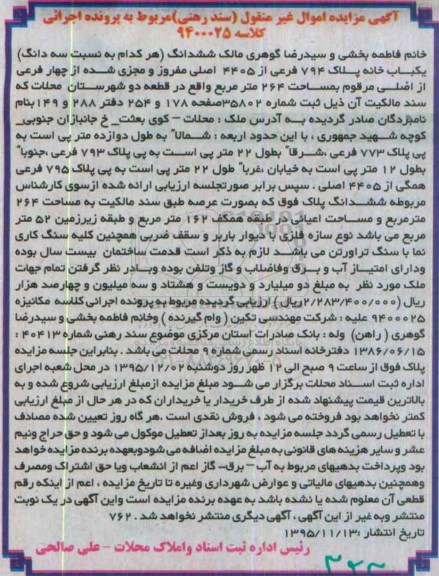 آگهی مزایده اموال غیر منقول (سند رهنی)مربوط به پرونده اجرائی
کلاسه ۹۴۰۰۰۲۵
خانم فاطمه بخشی و سیدرضا گوهری مالک ششدانگ (هر کدام به نسبت سه دانگ)
یکباب خانه پلاک ۷۹۴ فرعی از ۴۴۰۵ اصلی مفروز و مجزی شده از چهار فرعی
از اصلی مرقوم بمساحت ۲۶۴ متر مربع واقع در قطعه دو شهرستان محلات که
سند مالکیت آن ذیل ثبت شماره ۳۵۸۰۲صفحه ۱۷۸ و ۲۵۴ دفتر ۲۸۸ و ۱۴۹بنام
نامبردگان صادر گردیده به آدرس ملک : محلات – کوی بعثت_ خ جانبازان جنوبی_
کوچه شهید جمهوری ، با این حدود اربعه : شمالا" به طول دوازده متر پی است به
پی پلاک ۷۷۳ فرعی ،شرقا" بطول ۲۲ متر پی است به پی پلاک ۷۹۳ فرعی ،جنوبا"
بطول ۱۲ متر پی است به خیابان ،غربا" طول ۲۲ متر پی است به پی پلاک ۷۹۵ فرعی
همگی از ۴۴۰۵ اصلی . سپس برابر صورتجلسه ارزیابی ارائه شده ازسوی کارشناس
مربوطه ششدانگ پلاک فوق که بصورت عرصه طبق سند مالکیت به مساحت ۲۶۴
مترمربع و مساحت اعیانی در طبقه همکف ۱۶۲ متر مربع و طبقه زیرزمین ۵۲ متر
مربع می باشد نوع سازه فلزی با دیوار باربر و سقف ضربی همچنین کلیه سنگ کاری
نما با سنگ تراورتن می باشد لازم به ذکر است قدمت ساختمان بیست سال بوده
ودارای امتیاز آب و برق وفاضلاب و گاز وتلفن بوده وبادر نظر گرفتن تمام جهات
ملک مورد نظر به مبلغ دو میلیارد و دویست و هشتاد و سه میلیون و چهارصد هزار
ریال (۲/۲۸۳/۴۰۰/۰۰۰ریال ) ارزیابی گردیده مربوط به پرونده اجرائی کلاسه مکانیزه
۹۴۰۰۰۲۵ علیه : شرکت مهندسی تکین ( وام گیرنده ) وخانم فاطمه بخشی و سیدرضا
گوهری ( راهن) وله : بانک صادرات استان مرکزی موضوع سند رهنی شماره ۴۰۴۱۳ :
۱۳۸۶/۰۶/۱۵ دفترخانه اسناد رسمی شماره ۹ محلات می باشد . بنابراین جلسه مزایده
پلاک فوق از ساعت ۹ صبح الی ۱۲ ظهر روز دوشنبه ۱۳۹۵/۱۲/۰۲ در محل شعبه اجرای
اداره ثبت اسناد محلات برگزار می شود مبلغ مزایده ازمبلغ ارزیابی شروع شده و به
بالاترین قیمت پیشنهاد شده از طرف خریدار یا خریداران که در هر حال از مبلغ ارزیابی
کمتر نخواهد بود فروخته می شود ، فروش نقدی است .هر گاه روز تعیین شده مصادف
با تعطیل رسمی گردد جلسه مزایده به روز بعداز تعطیل موکول می شود و حق حراج ونیم
عشر و سایر هزینه های قانونی به مبلغ مزایده اضافه می شودوبعهده برنده مزایده خواهد
بود وپرداخت بدهیهای مربوط به آب – برق– گاز اعم از انشعاب ویا حق اشتراک ومصرف
وهمچنین بدهیهای مالیاتی و عوارض شهرداری وغیره تا تاریخ مزایده ، اعم از اینکه رقم
قطعی آن معلوم شده یا نشده باشد به عهده برنده مزایده است واین آگهی در یک نوبت
منتشر وبه غیر از این آگهی ، آگهی دیگری منتشر نخواهد شد . ۷۶۲
تاریخ انتشار :۱۳۹۵/۱۱/۱۳
رئیس اداره ثبت اسناد واملاک محلات - علی صالحی